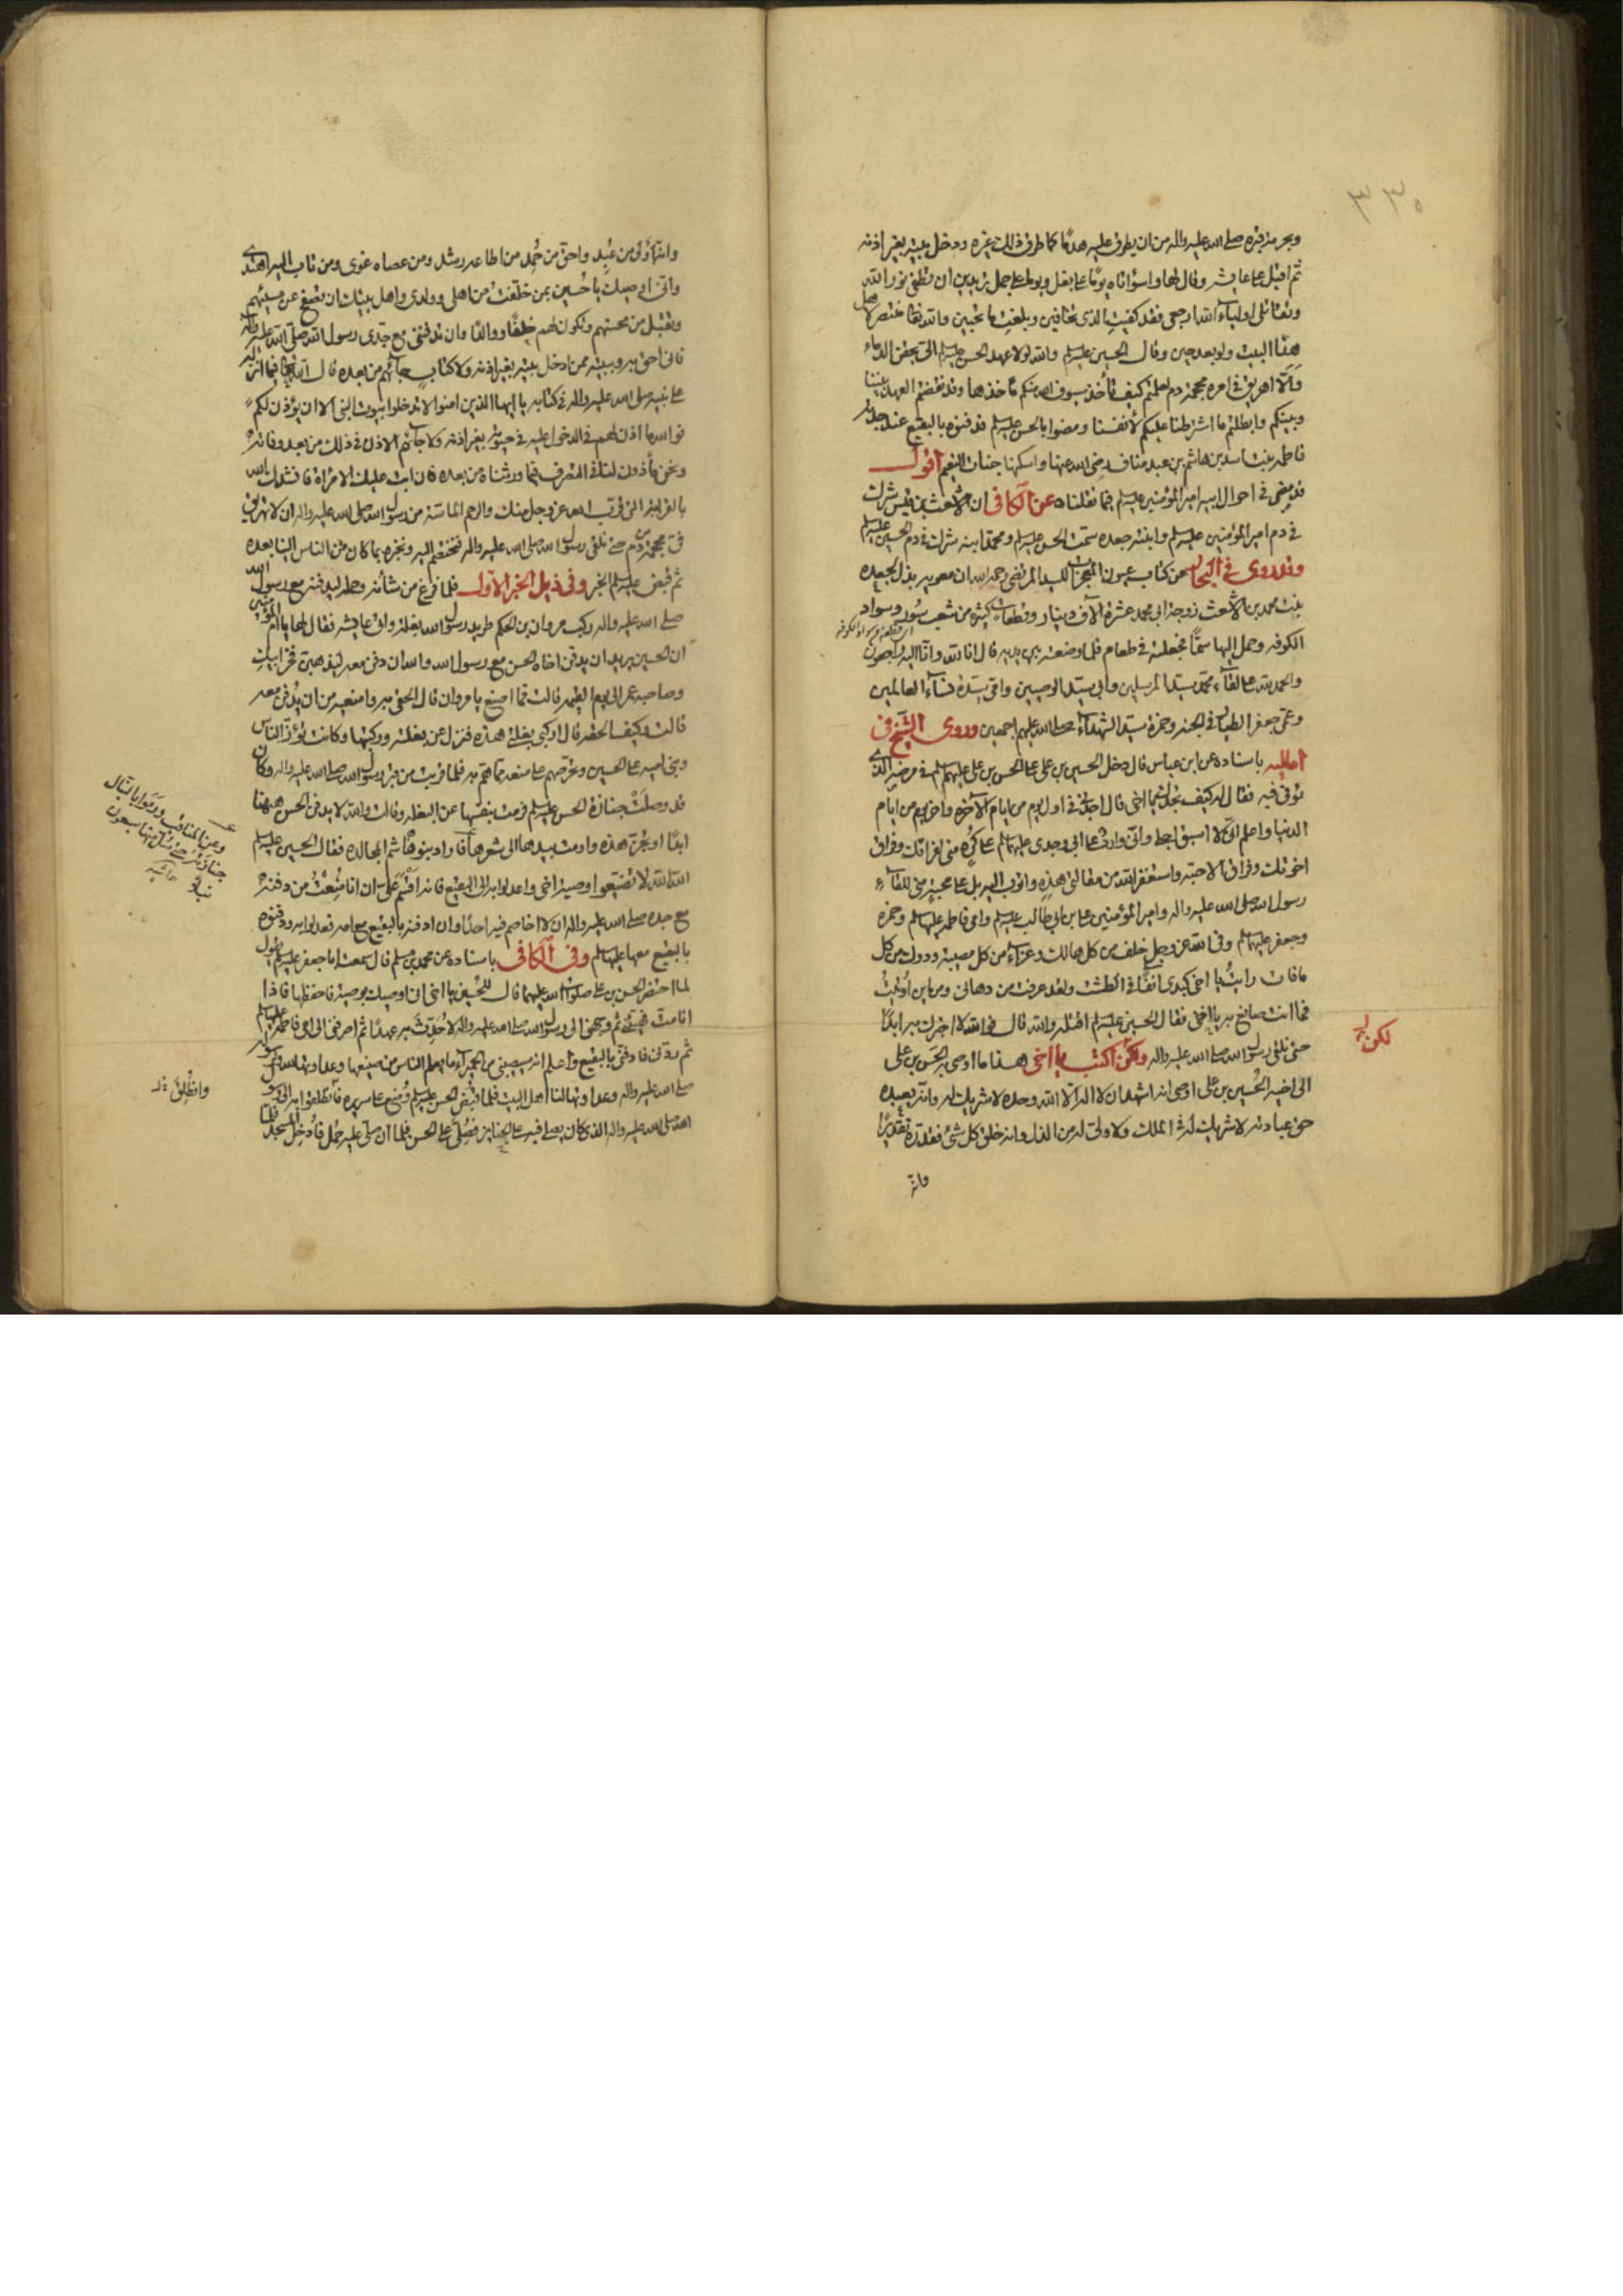 ٣٣٠
وبحرمة قبره صلى الله عليه واله من ان يطرق عليه هدمًا كما طرق ذلك غيره ودخل بيته بغير اذنه
ثم اقبل على عايشه وقال لها واسوأتاه يومًا على بغل ويومًا على جمل تريدين ان تطفئ نور الله
وتقاتلى اولياء الله ارجعى فقد كفيت الذى تخافين وبلغت ما تحبين والله تعالى منتصر لاهل
هذا البيت ولو بعد حين وقال الحسين عليه السلم والله لولا عهد الحسن عليه السلم الىّ بحقن الدماء
وألّا اهريق فى امره محجمة دم لعلمتم كيف تأخذ سيوف الله منكم مأخذها وقد نقضتم العهد بيننا
وبينكم وابطلتم ما اشترطنا عليكم لأنفسنا ومضوا بالحسن عليه السلم فدفنوه بالبقيع عند جدته
فاطمه بنت اسد بن هاشم بن عبد مناف رضى الله عنها واسكنها جنات النعيم اقول
قد مضى فى احوال ابيه امير المؤمنين عليه السلم فيما نقلناه عن الكافى ان الاشعث بن قيس شرك
فى دم امير المؤمنين عليه السلم وابنته جعده سمّت الحسن عليه السلم ومحمد ابنه شرك فى دم الحسين عليه السلم
وقد روى فى البحار عن كتاب عيون المعجزات للسيد المرتضى رحمه الله ان معويه بذل لجعده
بنت محمد بن الاشعث زوجة ابى محمد عشرة الآف دينار وقطعات كثيره من شعب سُور وسواد
الكوفه وحمل اليها سمًّا فجعلته فى طعام فلما وضعته بين يديه قال انا لله وانا اليه راجعون
والحمد لله على لقاء محمد سيد المرسلين وابى سيد الوصيين وامى سيدة نسآء العالمين
وعمى جعفر الطيار فى الجنه وحمزه سيد الشهداء صلى الله عليهم اجمعين وروى الشيخ فى
اماليه باسناده عن ابن عباس قال دخل الحسين بن على على الحسن بن على عليهم السلم فى مرضه الذى
توفى فيه فقال له كيف تجدك يا اخى قال اجدنى فى اول يوم من ايام الآخره واخر يوم من ايام
الدنيا واعلم انى لا اسبق اجلى وانى وارد على ابى وجدى عليهما السلم على كُرهٍ منى لفراقك وفراق
اخوتك وفراق الاحبّه واستغفر الله من مقالتى هذه واتوب اليه بل على محبة منى للقاء
رسول الله صلى الله عليه واله وامير المؤمنين على بن ابى طالب عليه السلم وامى فاطمه عليها السلم وحمزه
وجعفر عليهما السلم وفى الله عز وجل خلف من كل هالك وعزاء من كل مصيبة ودرك من كل
ما فات رايتُ يا اخى كبدى آنفًا فى الطشت ولقد عرفت من دهانى ومن اين اُوتيتُ
فما انت صانع به يا اخى فقال الحسين عليه السلم اقتله والله قال فو الله لا اخبرك به ابدًا
حتى نلقى رسول الله صلى الله عليه واله ولكن اكتب يا اخى هذا ما اوصى به الحسن بن على
الى اخيه الحُسين بن على اوصى انه اشهد ان لا اله الّا الله وحده لا شريك له وانه يعبده
حق عبادته لا شريك له فى الملك ولا ولىّ له من الذل وانه خلق كل شئ فقدّره تقديرًا
وانه
لكن
وانه اَولى من عُبِد واحق من حُمِد من اطاعه رشد ومن عصاه غوى ومن تاب اليه اهتدى
وانى اوصيك يا حُسين بمن خلّفتُ من اهلى وولدى واهل بيتك ان تصفح عن مسيئهم
وتقبل من محسنهم وتكون لهم خلفًا ووالدًا وان تدفننى مع جدى رسول الله صلى الله عليه واله
فانى احق به وببيته ممن ادخل بيته بغير اذنه ولا كتاب جاءهم من بعده قال الله تعالى فيما انزله
على نبيه صلى الله عليه واله فى كتابه يا ايها الذين امنوا لا تدخلوا بيوت النبى الا ان يؤذن لكم
فو الله ما اذن لهم فى الدخول عليه فى حيوته بغير اذنه ولا جاءهم الاذن فى ذلك من بعد وفاته
ونحن مأذون لنا فى التصرف فيما ورثناه من بعده فان ابت عليك الامراة فانشدك بالله
بالقرابة التى قرّب الله عز وجل منك والرحم الماسّة من رسول الله صلى الله عليه واله ان لا تهريق
فىّ محجمة من دم حتى نلقى رسول الله صلى الله عليه واله فنختصم اليه ونخبره بما كان من الناس الينا بعده
ثم قبض عليه السلم الخبر وفى ذيل الخبر الاول فلما فرغ من شأنه وحمله ليدفنه مع رسول الله
صلى الله عليه واله ركب مروان بن الحكم طريد رسول الله بغلة واتى عايشه فقال لها يا ام المؤمنين
ان الحسين يريد ان يدفن اخاه الحسن مع رسول الله والله ان دفن معه ليذهبن فخر ابيك
وصاحبه عمر الى يوم القيمه قالت فما اصنع يا مروان قال الحقى به وامنعيه من ان يُدفن معه
قالت وكيف الحقه قال اركبى بغلتى هذه فنزل عن بغلته وركبتها وكانت تؤزّ الناس
وبنى اميه على الحسين وتحرضهم على منعه مما همّ به فلما قربت من قبر رسول الله صلى الله عليه واله وكان
قد وصلَت جنازة الحسن عليه السلم فرمت بنفسها عن البغله وقالت والله لا يدفن الحسن ههنا
ابدًا او تجزّ هذه واومت بيدها الى شعرها فاراد بنو هاشم المجالده فقال الحسين عليه السلم
الله الله لا تضيّعوا وصية اخى واعدلوا به الى البقيع فانه اقسم علىّ ان انا مُنعت من دفنه
مع جده صلى الله عليه واله ان لا اخاصم فيه احدًا وان ادفنه بالبقيع مع امه فعدلوا به ودفنوه
بالبقيع معها عليهما السلم وفى الكافى باسناده عن محمد بن مسلم قال سمعت ابا جعفر عليه السلم يقول
لما احتضر الحسن بن على صلوات الله عليهما قال للحُسين يا اخى انى اوصيك بوصية فاحفظها فاذا
انا مت فهيّئنى ثم وجهنى الى رسول الله صلى الله عليه واله لاُحدِثَ به عهدًا ثم اصرفنى الى امى فاطمه عليها السلم
ثم ردّنى فادفنّى بالبقيع واعلم انه سيصيبنى من الحميراء ما يعلم الناس من صنيعها وعداوتها لله ولرسوله
صلى الله عليه واله وعداوتها لنا اهل البيت فلما قُبِض الحسن عليه السلم وُضع على سريره فانطلقوا به الى
الله صلى الله عليه واله الذى كان يصلى فيه على الجنايز فصُلّىَ على الحسن فلما ان صلى عليه حُمل فأُدخل المسجد فلما
وعن المناقب ورموا بالنبال
جنازته حتى سُلّ منها سبعون
نبلًا
حاشيه
وانطُلِقَ